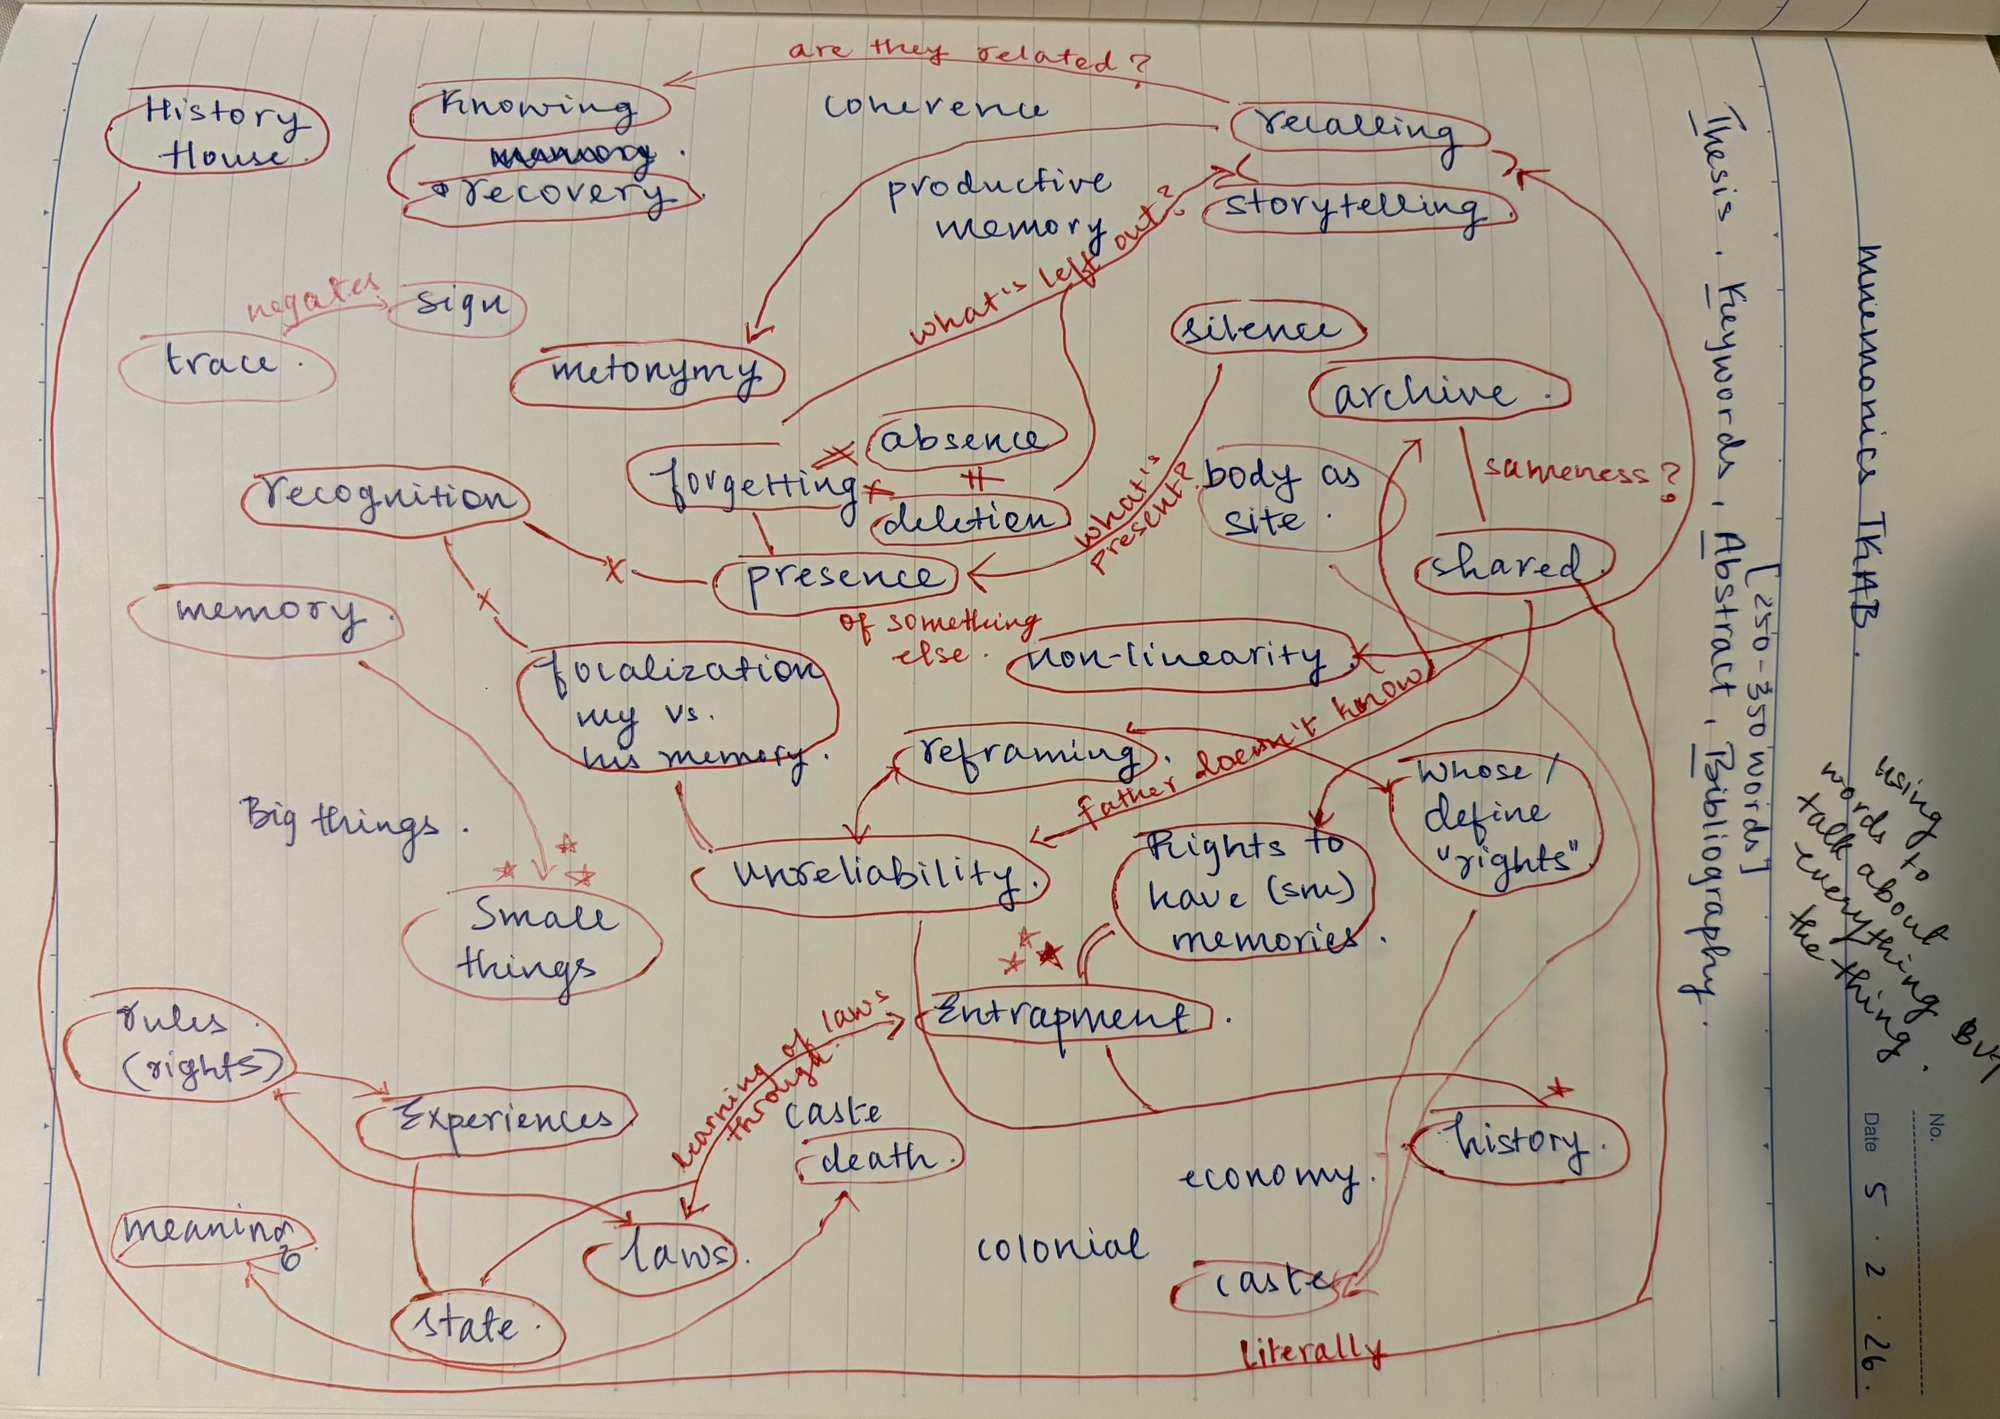 are they related?
History
House.
Knowing
recovery
coherence
recalling
productive
memory
storytelling.
what's left out?
negates
sign
trace.
metonymy
silence
archive.
sameness?
absence
forgetting
deletion
recognition
what's
present?
body as
site.
shared.
presence
of something
else.
memory.
non-linearity.
focalization
my vs.
his memory.
father doesn't know
reframing.
whose/
define
"rights"
Big things.
unreliability.
Rights to
have (sm)
memories.
Small
things
Entrapment.
rules.
(rights)
learning of laws
through.
Experiences
caste
death.
history.
economy.
meaning
laws.
colonial
caste
state.
Literally
Thesis, Keywords, Abstract, Bibliography.
[250-350 words]
mnemonics TKAB.
using
words to
talk about
everything But
the thing.
No.
Date 5.2.26.